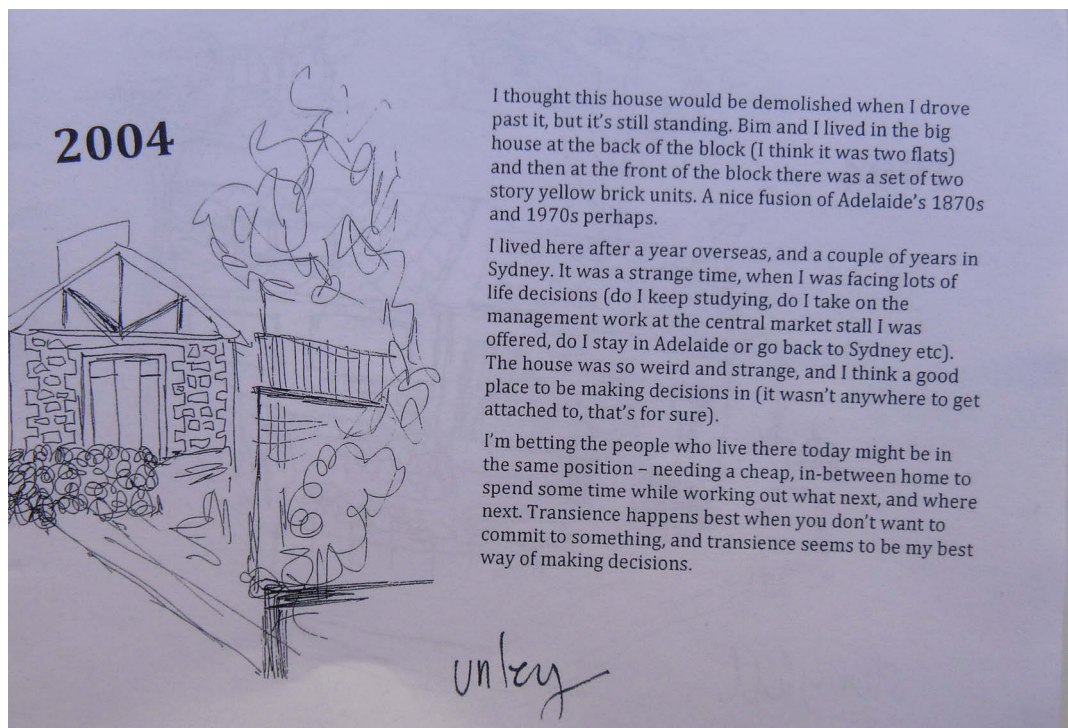 2004
I thought this house would be demolished when I drove
past it, but it's still standing. Bim and I lived in the big
house at the back of the block (I think it was two flats)
and then at the front of the block there was a set of two
story yellow brick units. A nice fusion of Adelaide's 1870s
and 1970s perhaps.
I lived here after a year overseas, and a couple of years in
Sydney. It was a strange time, when I was facing lots of
life decisions (do I keep studying, do I take on the
management work at the central market stall I was
offered, do I stay in Adelaide or go back to Sydney etc).
The house was so weird and strange, and I think a good
place to be making decisions in (it wasn't anywhere to get
attached to, that's for sure).
I'm betting the people who live there today might be in
the same position – needing a cheap, in-between home to
spend some time while working out what next, and where
next. Transience happens best when you don't want to
commit to something, and transience seems to be my best
way of making decisions.
unley